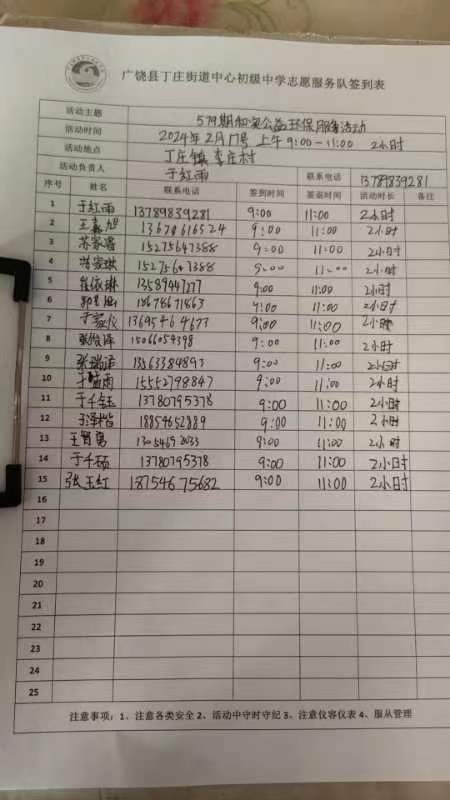 广饶县丁庄街道中心初级中学志愿服务队签到表
活动主题 579期和安公益环保服务活动
活动时间 2024年2月17号 上午9:00-11:00 2小时
活动地点 丁庄镇李庄村
活动负责人 于红雨 联系电话 13789839281
序号 姓名 联系电话 签到时间 签退时间 活动时长 备注
1 于红雨 13789839281 9:00 11:00 2小时
2 王嘉旭 9:00 11:00 2小时
3 15275647388 9:00 11:00 2小时
4 15275647388 9:00 11:00 2小时
5 9:00 11:00 2小时
6 18678671863 9:00 11:00 2小时
7 13695464677 9:00 11:00 2小时
8 15066054398 9:00 11:00 2小时
9 18563384893 9:00 11:00 2小时
10 15552798847 9:00 11:00 2小时
11 于千钰 13780795378 9:00 11:00 2小时
12 于泽楷 18854652889 9:00 11:00 2小时
13 9:00 11:00 2小时
14 于千硕 13780795378 9:00 11:00 2小时
15 张玉红 18754675682 9:00 11:00 2小时
16
17
18
19
20
21
22
23
24
25
注意事项：1、注意各类安全 2、活动中守时守纪 3、注意仪容仪表 4、服从管理